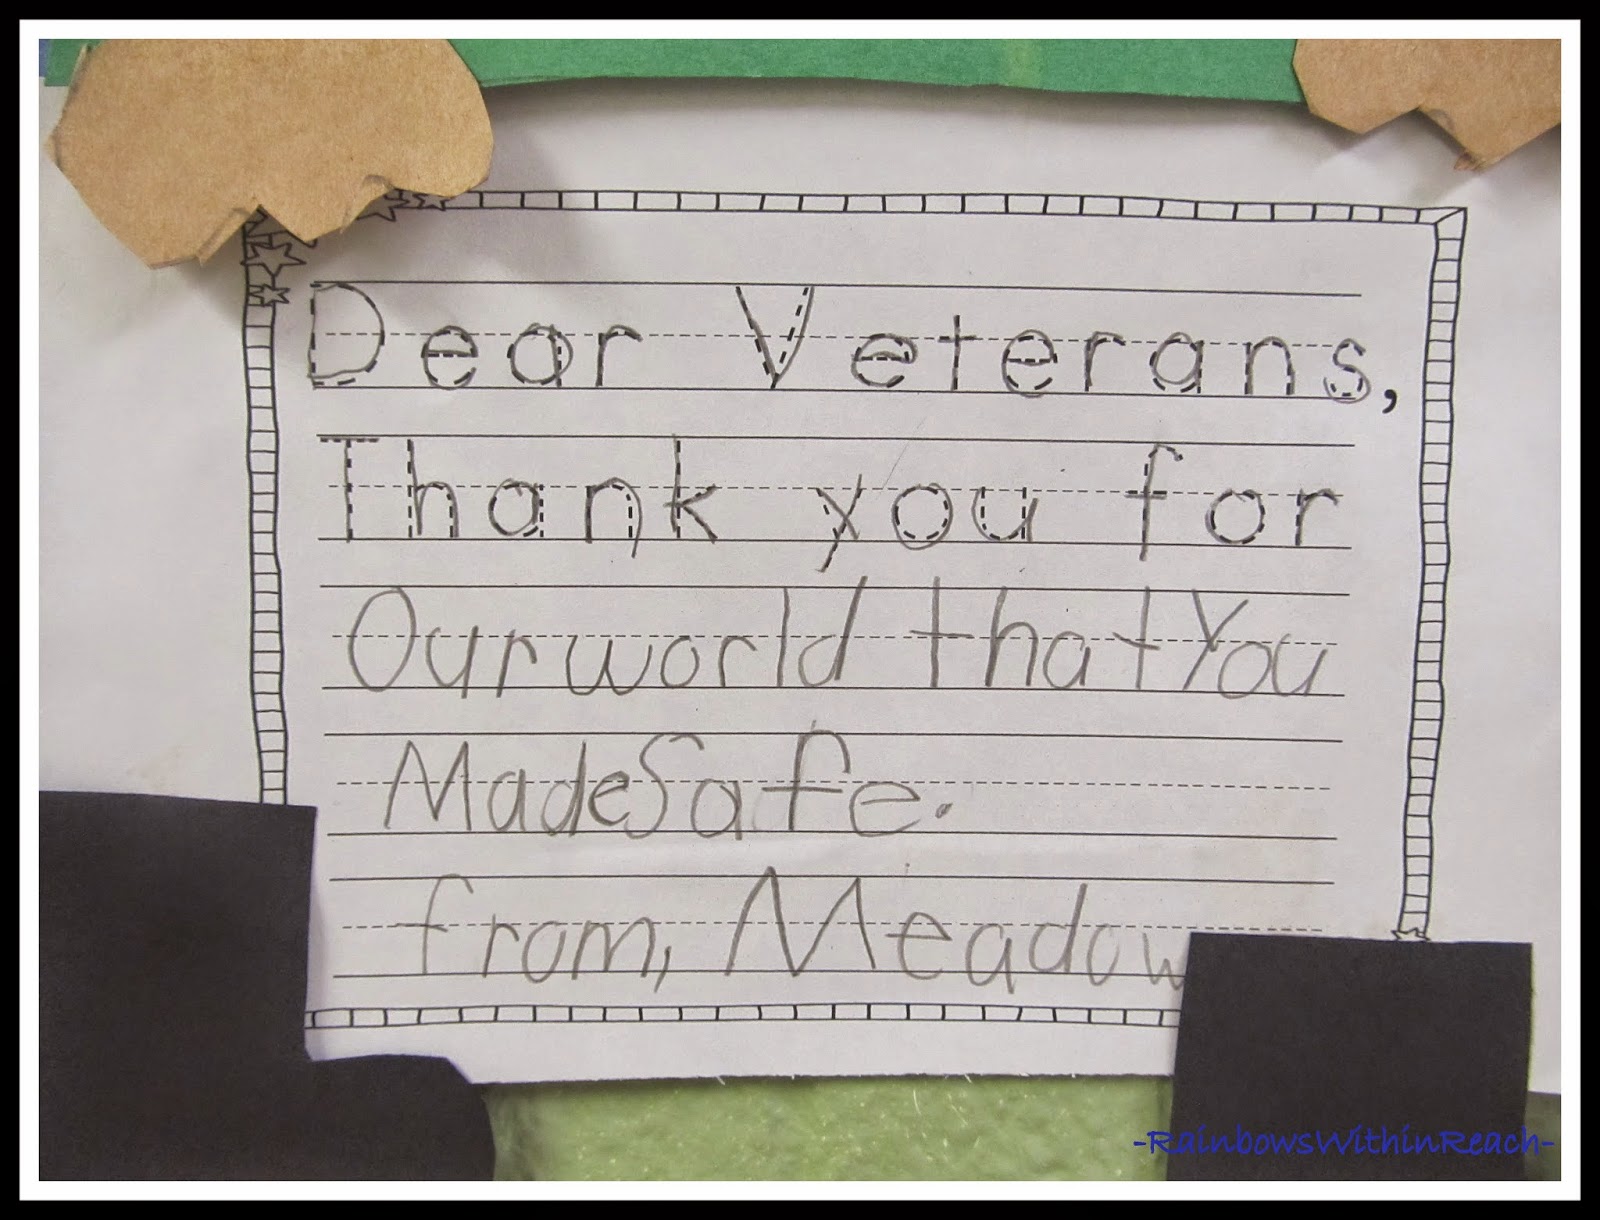 Dear Veterans,
Thank you for
Our world that You
Made Safe.
from, Meadow
-RainbowsWithinReach-